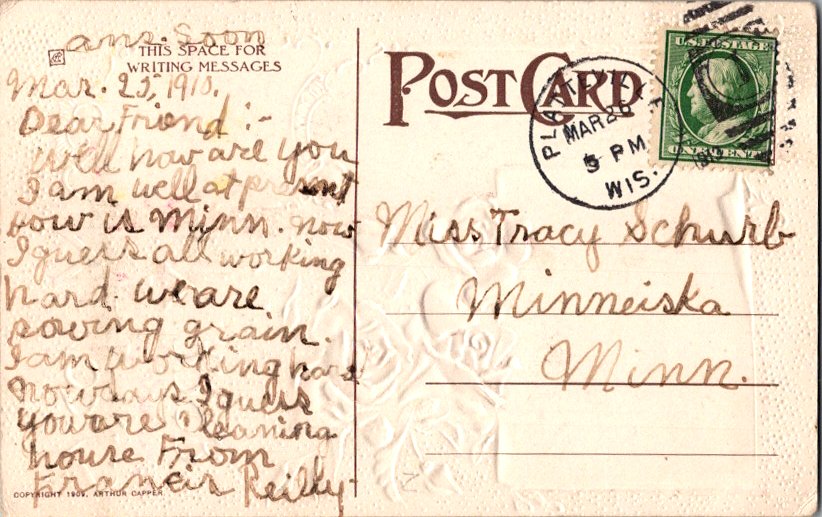 ans. Soon
THIS SPACE FOR
WRITING MESSAGES
Mar. 25, 1910.
Dear Friend :-
Well how are you
I am well at present
how is Minn. now
I guess all working
hard. we are
sowing grain.
I am working hard
nowdays I guess
you are cleaning
house From
Francis Reilly-
COPYRIGHT 1909, ARTHUR CAPPER
POST CARD
PLATTEVILLE
MAR 26
5 PM
WIS.
U.S. POSTAGE
ONE CENT
Miss. Tracy Schurb
Minneiska
Minn.